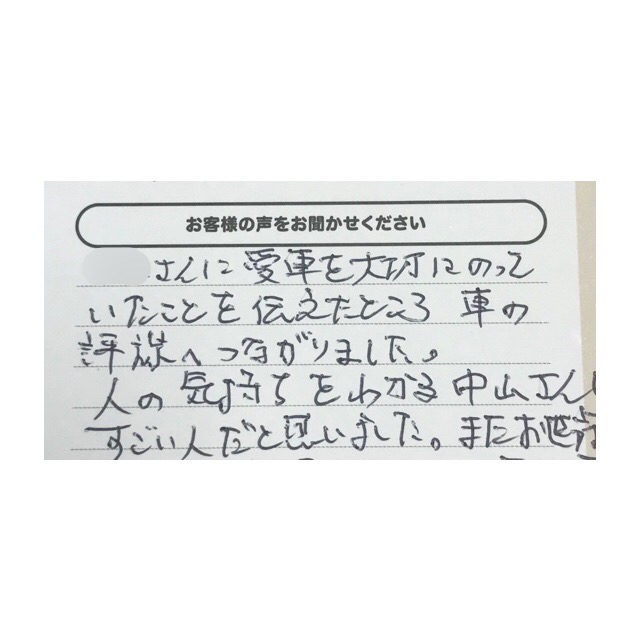 お客様の声をお聞かせください
さんに愛車を大切にのって
いたことを伝えたところ 車の
評価へつながりました。
人の気持ちをわかる中山さんは
すごい人だと思いました。またお世話